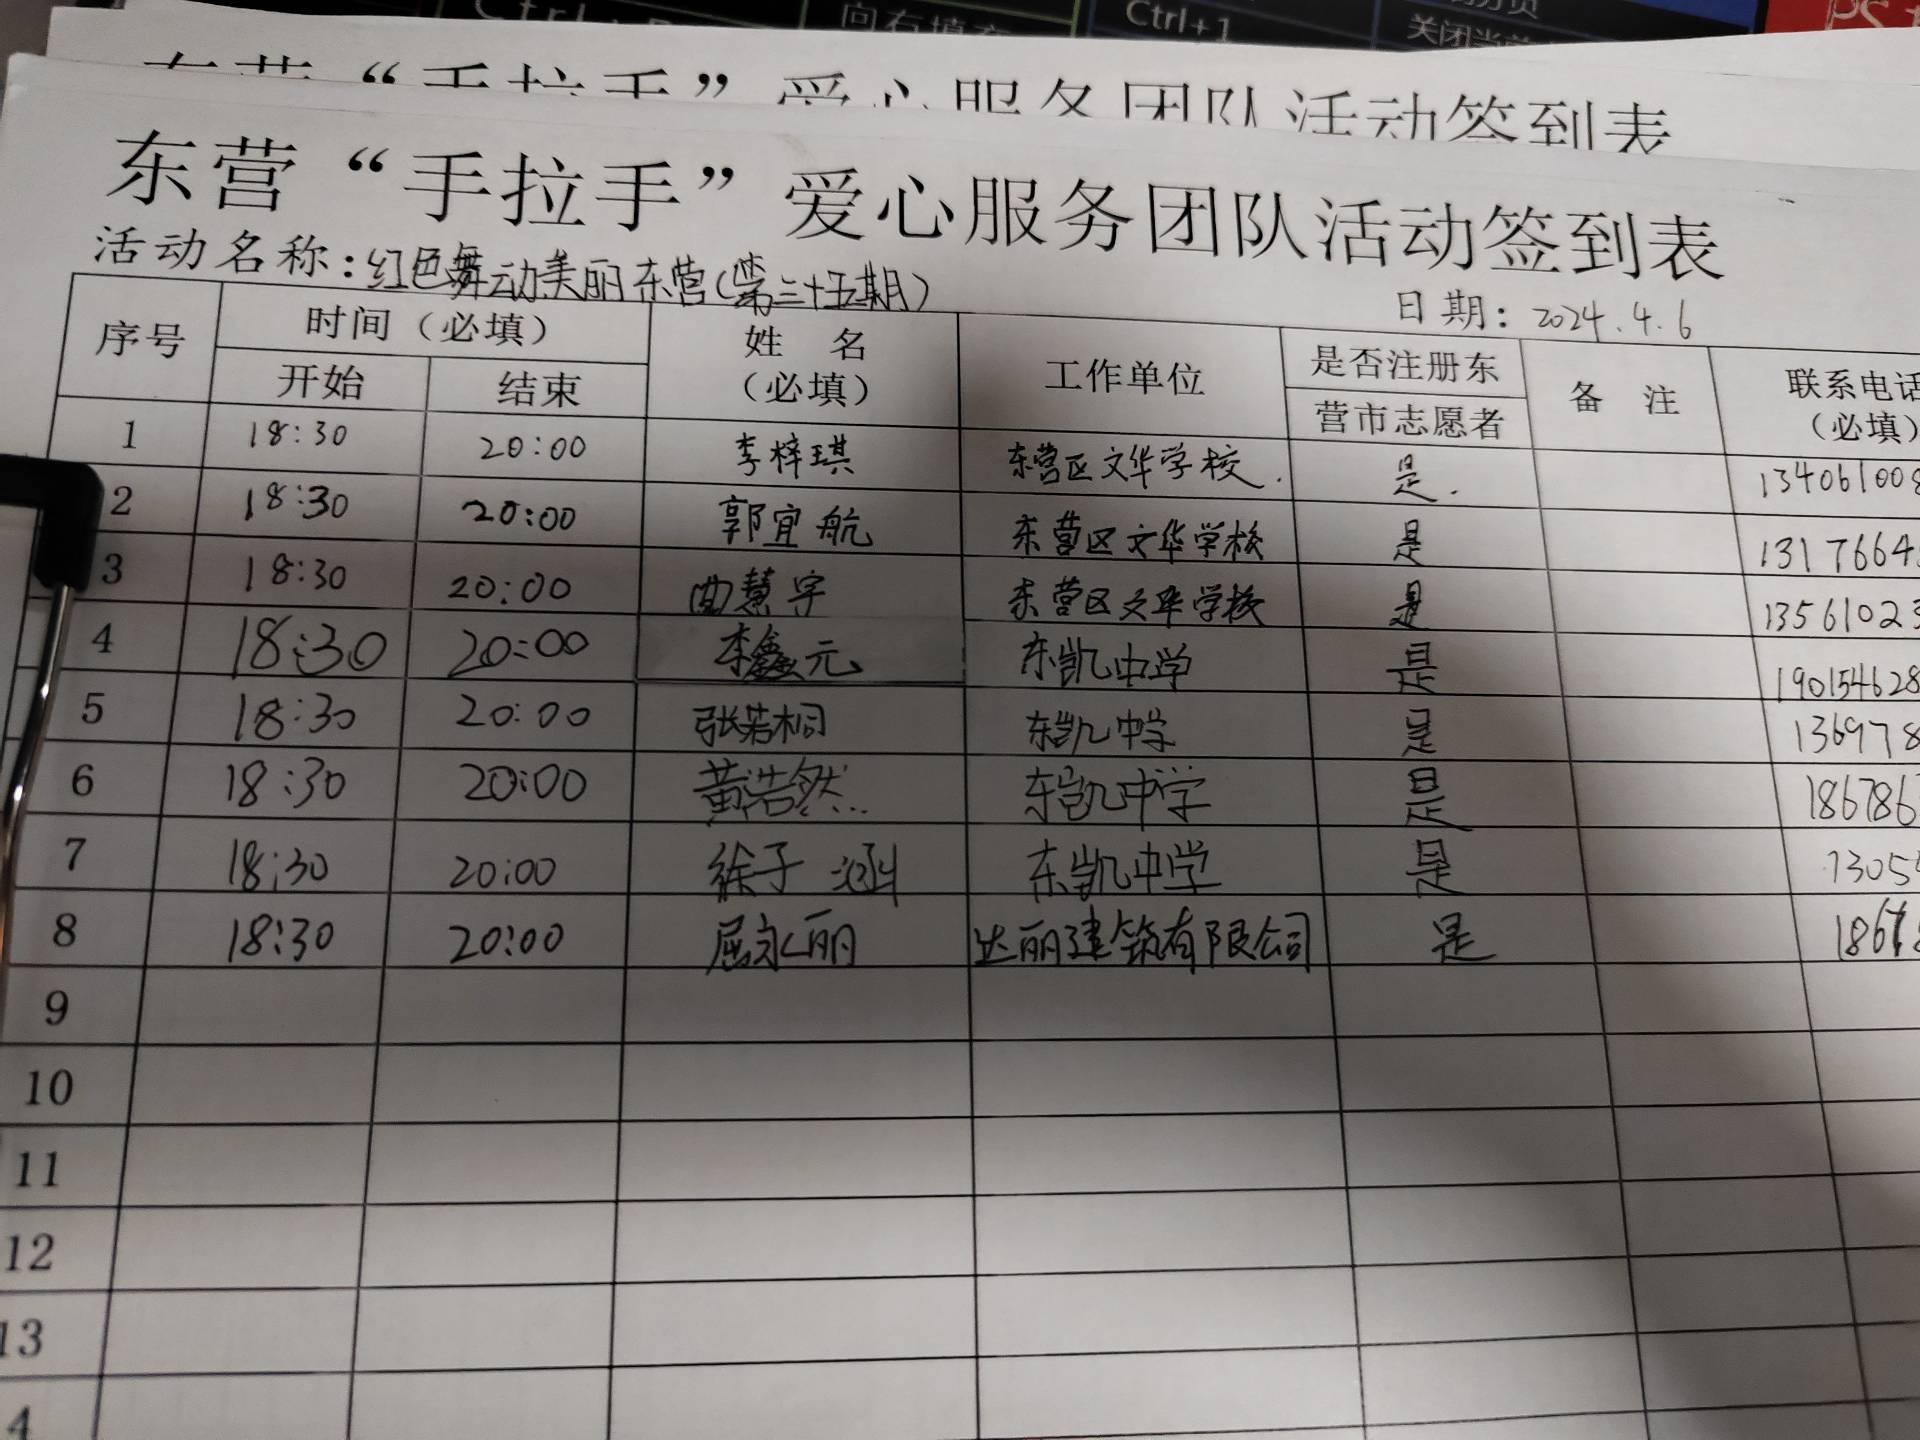 Ctrl+1
东营“手拉手”爱心服务团队活动签到表
东营“手拉手”爱心服务团队活动签到表
活动名称：红色舞动美丽东营（第三十五期）
日期：2024.4.6
序号 时间（必填） 姓名（必填） 工作单位 是否注册东营市志愿者 备注 联系电话（必填）
开始 结束
1 18:30 20:00 李梓琪 东营区文华学校. 是. 13406100
2 18:30 20:00 郭宜航 东营区文华学校 是 1317664
3 18:30 20:00 曲慧宇 东营区文华学校 是 1356102
4 18:30 20:00 李鑫元 东凯中学 是 190154628
5 18:30 20:00 张若桐 东凯中学 是 136978
6 18:30 20:00 黄浩然 东凯中学 是 186786
7 18:30 20:00 徐子涵 东凯中学 是 1305
8 18:30 20:00 屈永丽 达丽建筑有限公司 是 1867
9
10
11
12
13
4